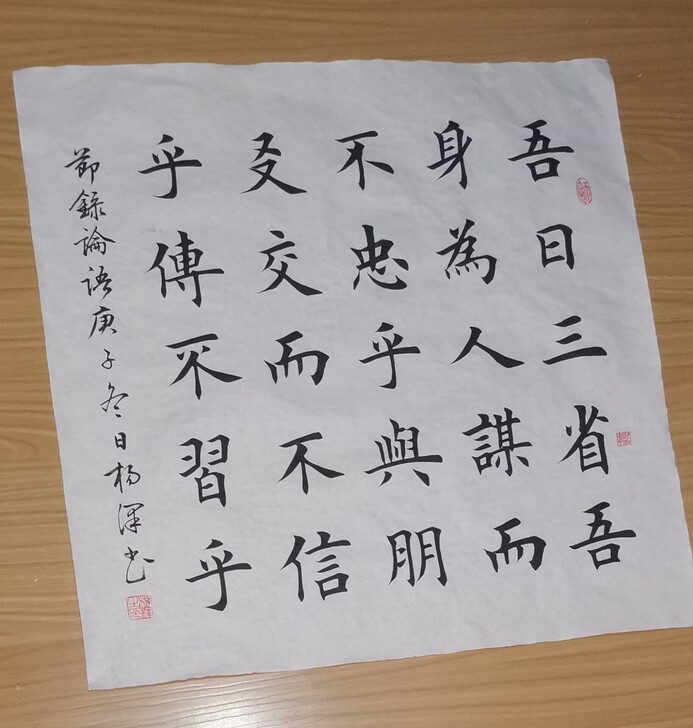 吾日三省吾
身為人謀而
不忠乎與朋
友交而不信
乎傳不習乎
節錄論語庚子冬日楊澤书